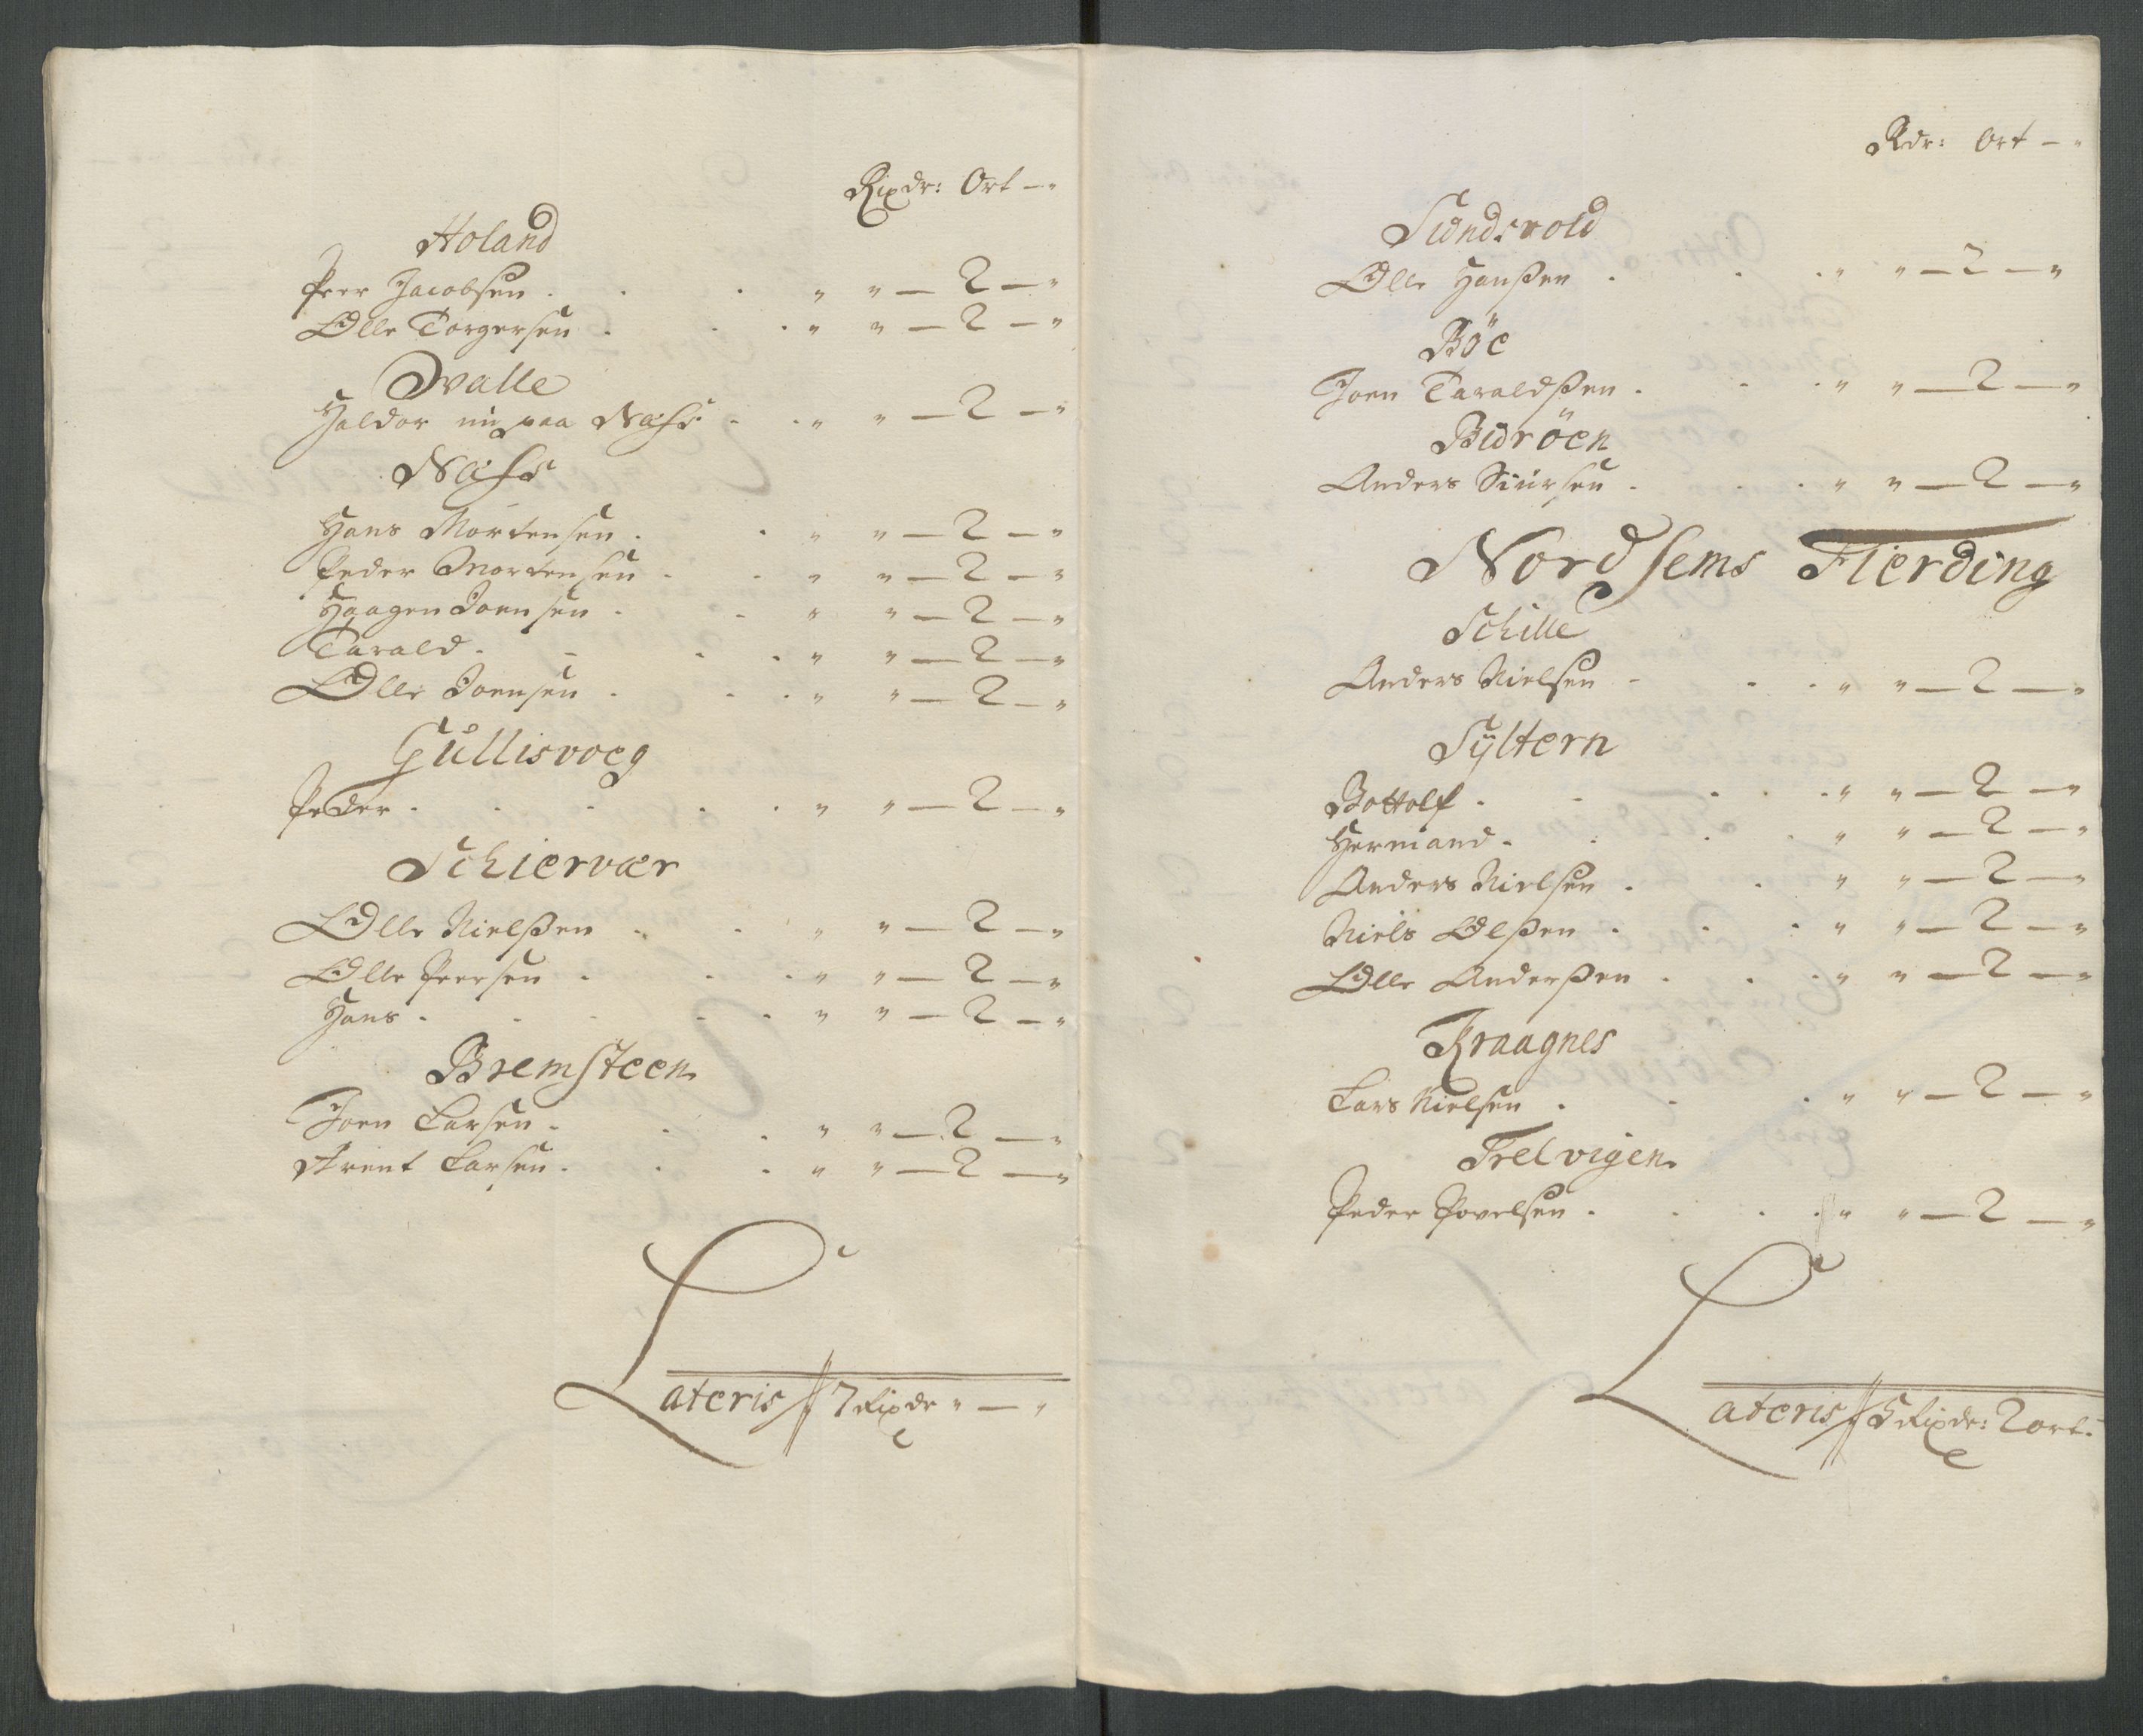 Rixdr: Ort — "
Holand
Peer Jacobsen . . . " " — 2 — "
Olle Torgersen . . . " " — 2 — "
Dvalle
Haldor nu paa Næss . . " " — 2 — "
Næss
Hans Mortensen . . " " — 2 — "
Peder Mortensen . . " " — 2 — "
Haagen Joensen . . " " — 2 — "
Tarald . . . . " " — 2 — "
Olle Joensen . . . " " — 2 — "
Gullisvoeg
Peder . . . . . " " — 2 — "
Schiervær
Olle Nielßen . . " " — 2 — "
Olle Peersen . . . " " — 2 — "
Hans . . . . . " " — 2 — "
Bremsteen
Joen Larsen . . . " " — 2 — "
Arent Larsen . . . " " — 2 — "
Lateris // 7 Rixdr " — "
Rdr: Ort — "
Sundsvold
Olle Hanßen . . . " " — 2 — "
Böe
Joen Taraldßen . . . " " — 2 — "
Buröen
Anders Siursen . . . " " — 2 — "
Nordsems Fierding
Schille
Anders Nielsen . . . " " — 2 — "
Sÿltern
Bottolf . . . . . " " — 2 — "
Hermand . . . . " " — 2 — "
Anders Nielsen . . " " — 2 — "
Niels Olßen . . . " " — 2 — "
Olle Anderßen . . . " " — 2 — "
Kraagnes
Lars Nielsen . . . " " — 2 — "
Trelvigen
Peder Povelsen . . . . " " — 2 — "
Lateris // 5 Rixdr: 2 ort.